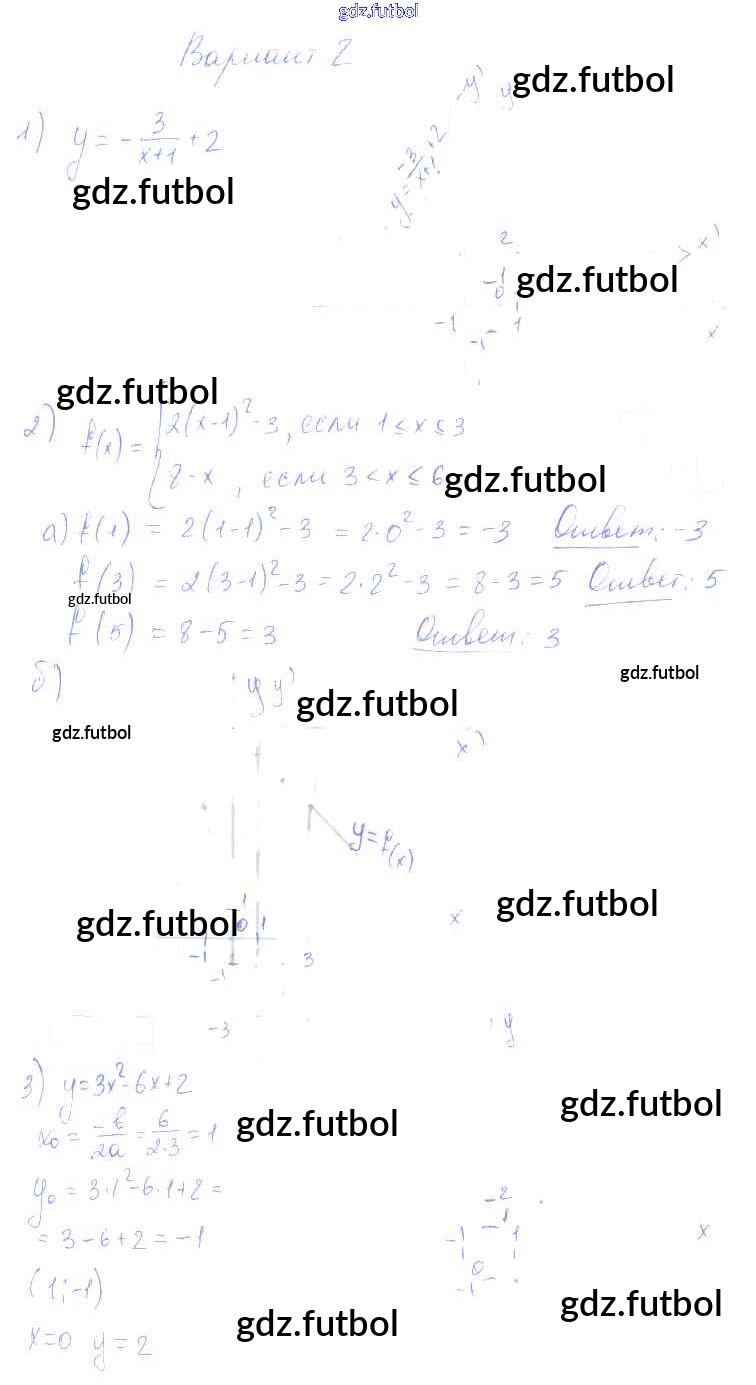 gdz.futbol
Вариант 2
gdz.futbol
y' y
1) y = - 3/(x+1) + 2
y = -3/(x+1) + 2
gdz.futbol
2 x'
-1 gdz.futbol
0
-1 1
-1 x
gdz.futbol
2) f(x) = { 2(x-1)² - 3, если 1 ≤ x ≤ 3
8 - x, если 3 < x ≤ 6
gdz.futbol
а) f(1) = 2(1-1)² - 3 = 2·0² - 3 = -3 Ответ: -3
f(3) = 2(3-1)² - 3 = 2·2² - 3 = 8 - 3 = 5 Ответ: 5
gdz.futbol
f(5) = 8 - 5 = 3 Ответ: 3
б)
gdz.futbol
y y'
gdz.futbol
gdz.futbol
x'
y = f(x)
gdz.futbol
1
gdz.futbol 0 1 x
-1 3
-1
-3 y
3) y = 3x² - 6x + 2
gdz.futbol
x₀ = -b/2a = 6/2·3 = 1
gdz.futbol
y₀ = 3·1² - 6·1 + 2 =
-2
= 3 - 6 + 2 = -1
-1
-1 1 x
0
(1; -1)
-1
gdz.futbol
x = 0 y = 2
gdz.futbol